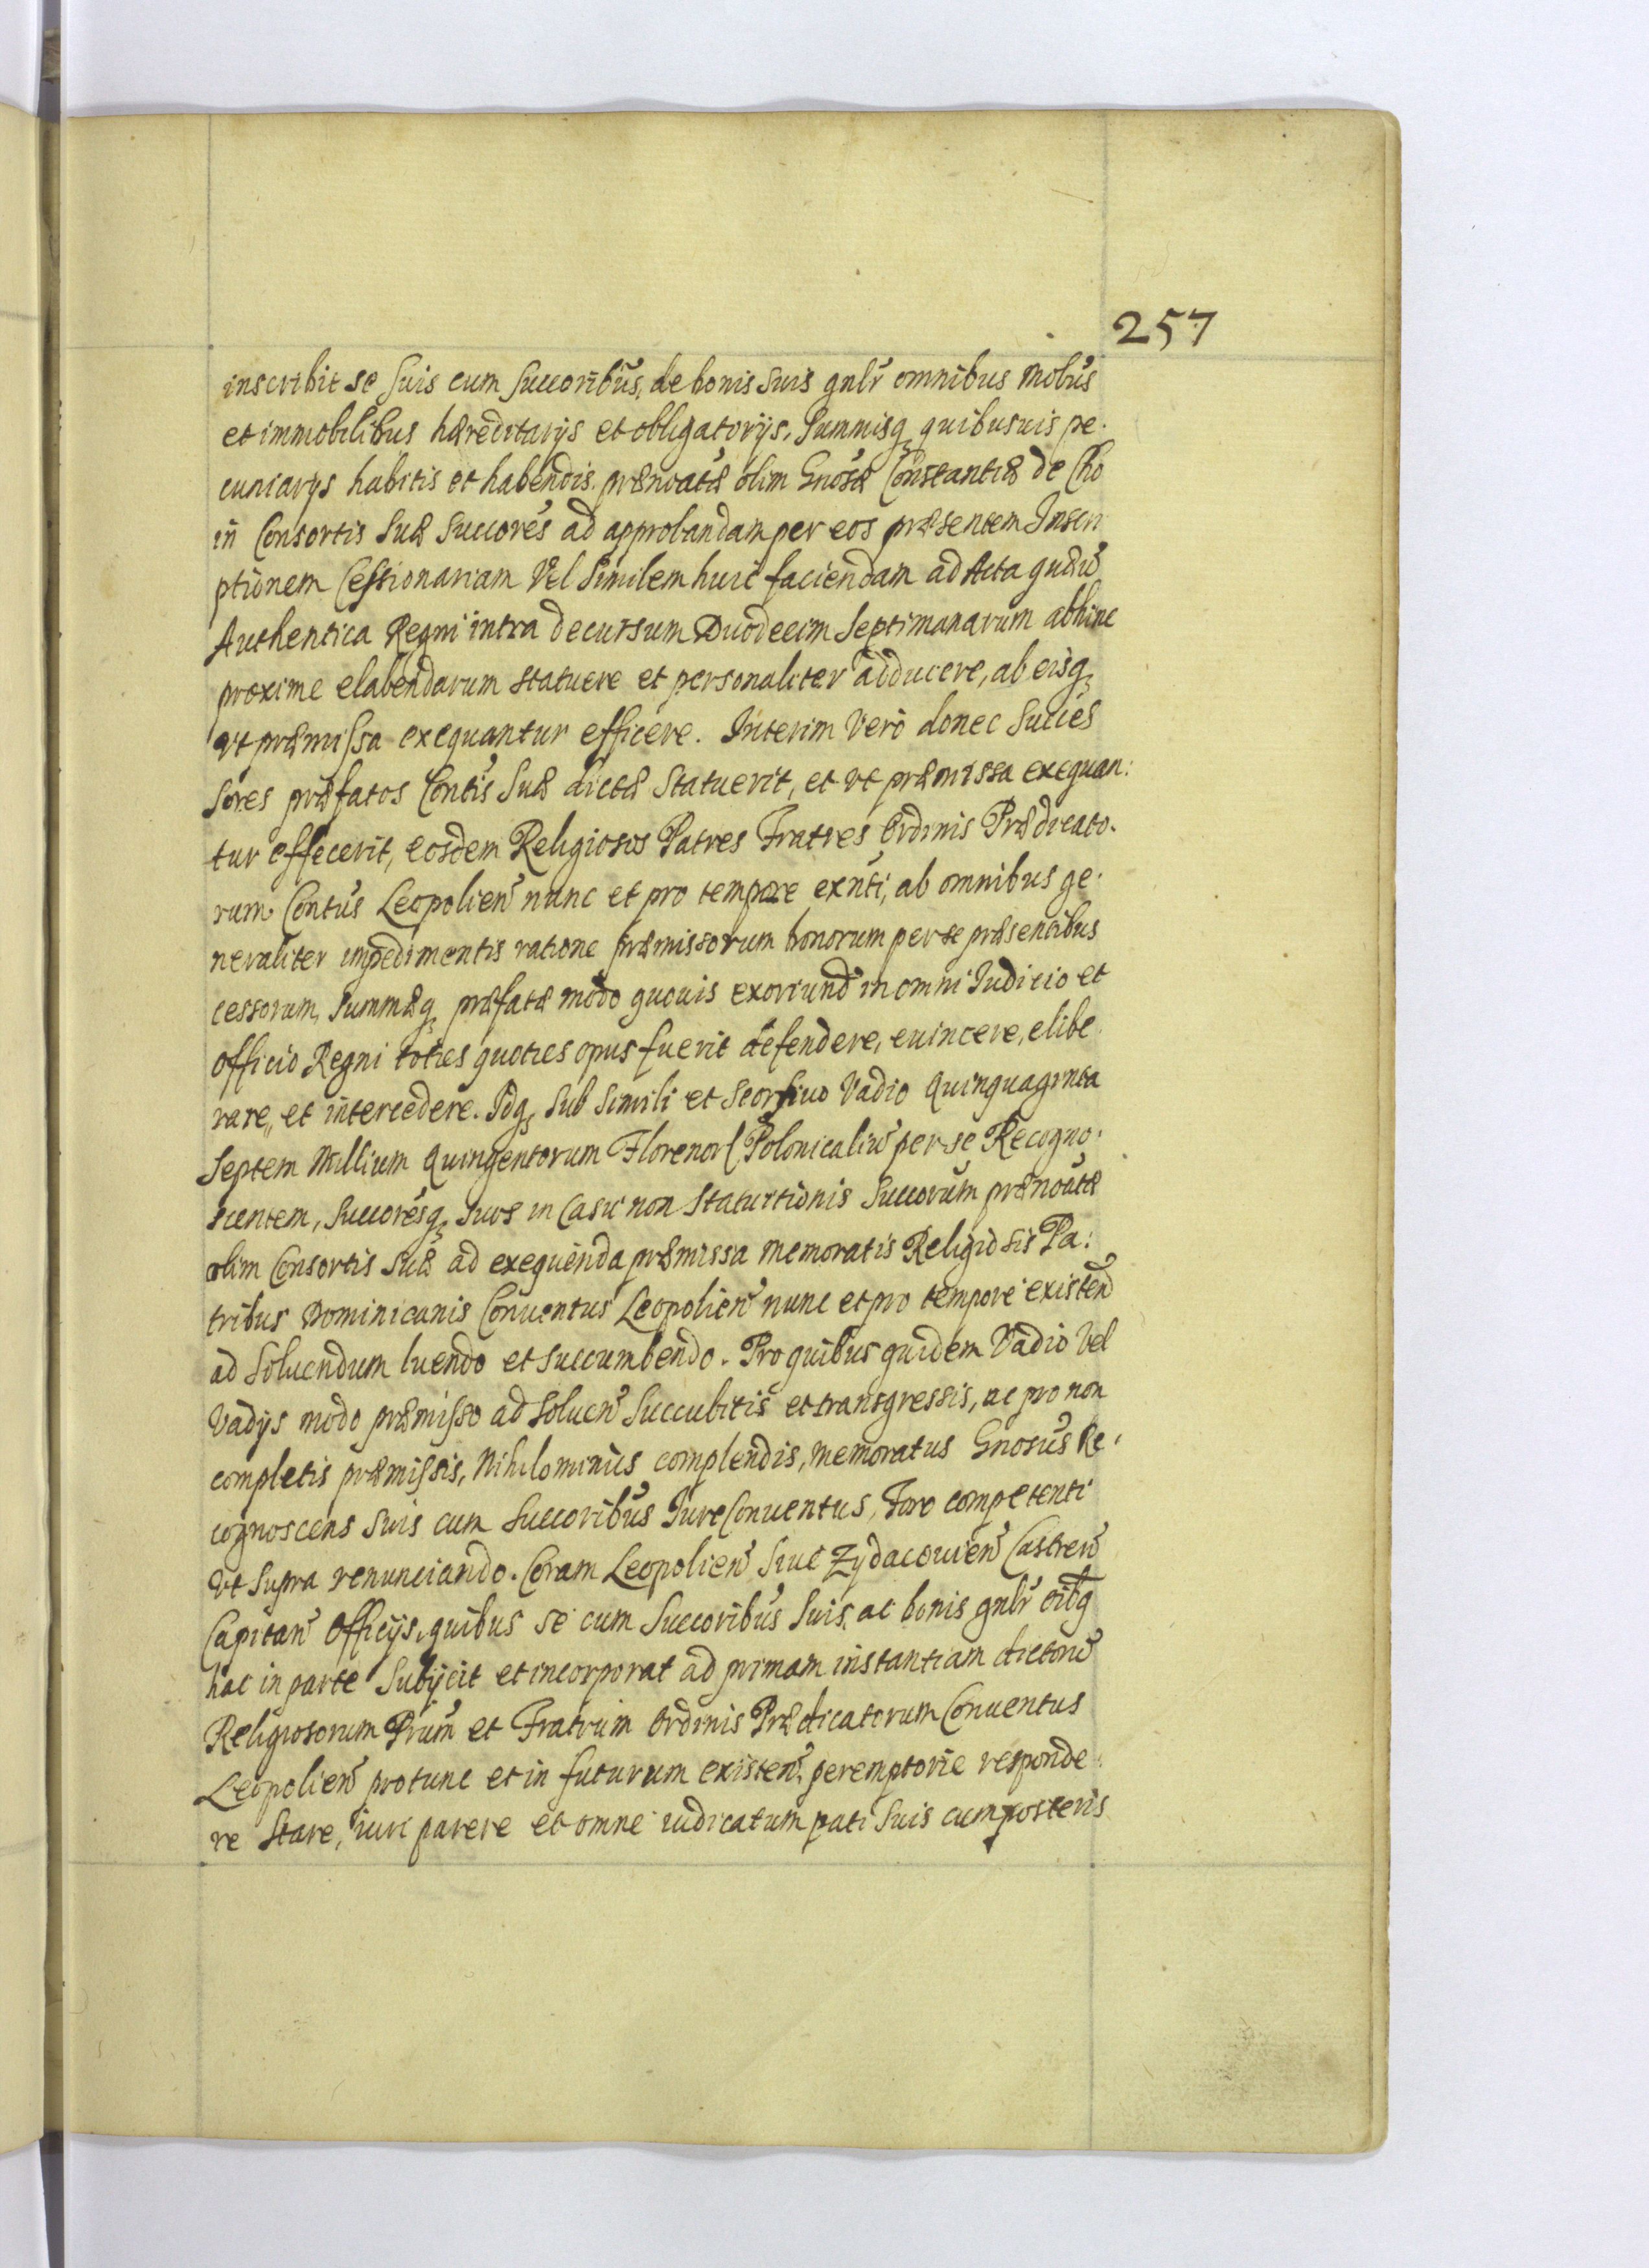 257
inscribit se suis cum succoribus, de bonis suis gnlr omnibus mobus
et immobilibus hæreditarijs et obligatorijs, Summisq quibusuis pe.
cuniarijs habitis et habendis. prænoatæ olim Gnosæ Constantiæ de Cho
in Consortis Suæ Succores ad approbandam per eos præsentem Inscri
ptionem Cessionariam Vel Similem huic faciendam ad Acta quæw
Authentica Regni intra decursum Duodecim Septimanarum abhinc
proxime elabendarum statuere et personaliter adducere, ab eisq
vt præmissa exequantur efficere. Interim Verò donec Succes
sores præfatos Contis Suæ dictæ Statuerit, et vt præmissa exequan:
tur effecerit, eosdem Religiosos Patres Fratres Ordinis Prædicato.
rum Contus Leopolien nunc et pro tempore exnti, ab omnibus ge.
neraliter impedimentis ratione præmissorum bonorum per se præsentibus
cessorum, Summæq præfatæ modo quouis exoriund in omni Iudicio et
Officio Regni toties quoties opus fuerit defendere, euincere, elibe.
rare,, et intercedere. Idq sub Simili et Seorsiuo Vadio Quinquaginta
Septem Millium Quingentorum Florenor Polonicaliu per se Recogno.
scentem, Succoresq suos in Casu non Statuitionis Succorum prænoatæ
olim Consortis suæ ad exequenda præmissa memoratis Religiosis Pa:
tribus Dominicanis Conuentus Leopolien nunc et pro tempore existend
ad Soluendum luendo et succumbendo. Pro quibus quidem Vadio Vel
Vadijs modo præmisso ad Soluen Succubitis et transgressis, ac pro non
completis præmissis, Nihilominus complendis, memoratus Gnosus Re.
cognoscens suis cum Succoribus Iure Conuentus, Foro competenti
Vt Supra renunciando. Coram Leopolien Siue Zydaczouien Castren
Capitan Officijs, quibus se cum Succoribus Suis, ac bonis gnlr oibq
hac in parte Subijcit et incorporat ad primam instantiam dictoru
Religiosorum Prum et Fratrum Ordinis Prædicatorum Conuentus
Leopolien protunc et in futurum existen, peremptorie responde.
re Stare, iuri parere et omne iudicatum pati Suis cum posteris